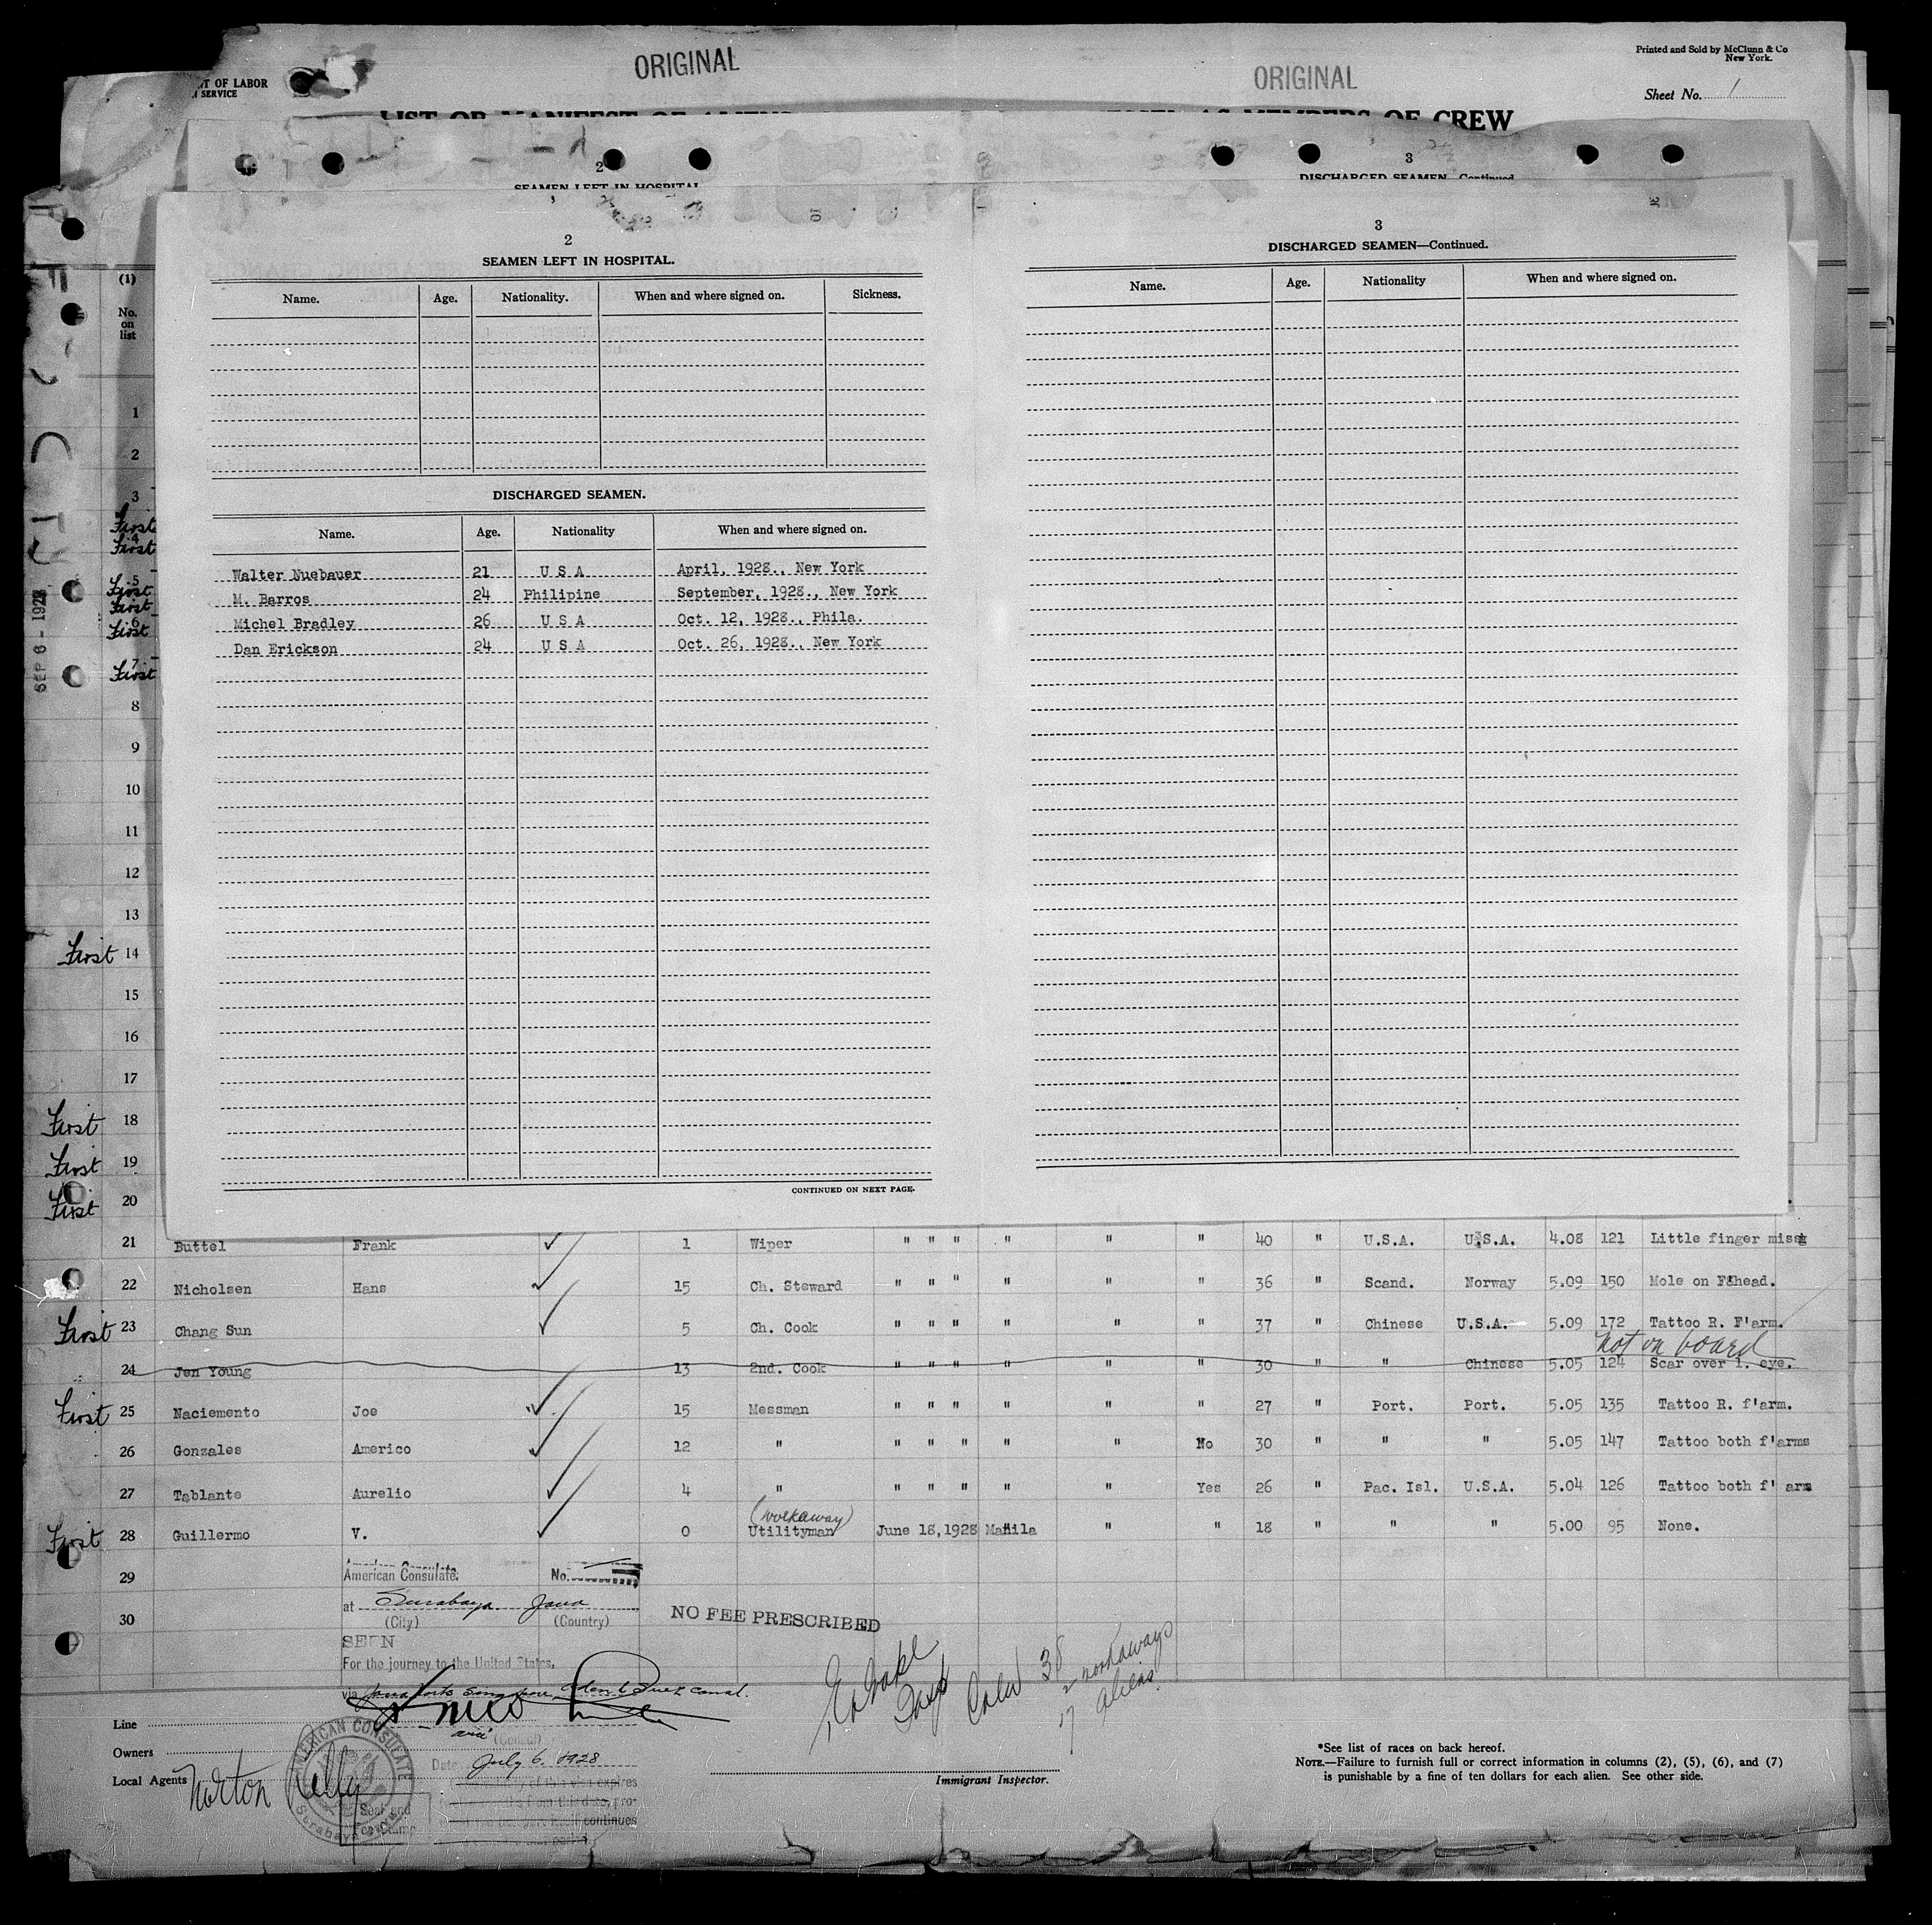 ORIGINAL
ORIGINAL
Printed and Sold by McClunn & Co
New York.
T OF LABOR
SERVICE
Sheet No. 1
LIST OR MANIFEST OF ALIENS
AS MEMBERS OF CREW
2
SEAMEN LEFT IN HOSPITAL
3
DISCHARGED SEAMEN—Continued
2
SEAMEN LEFT IN HOSPITAL.
Name. Age. Nationality. When and where signed on. Sickness.
DISCHARGED SEAMEN.
Name. Age. Nationality When and where signed on.
Walter Nuebauer 21 U S A April, 1928., New York
M. Barros 24 Philipine September, 1928., New York
Michel Bradley 26 U S A Oct. 12, 1928., Phila.
Dan Erickson 24 U S A Oct. 26, 1928., New York
CONTINUED ON NEXT PAGE.
3
DISCHARGED SEAMEN—Continued.
Name. Age. Nationality When and where signed on.
SEP 6 - 1928
(1)
No.
on
list
1
2
3
First
4
First
5
First
First
6
First
7
First
8
9
10
11
12
13
First 14
15
16
17
First 18
First 19
First 20
21 Buttel Frank 1 Wiper " " " " " " 40 " U.S.A. U.S.A. 4.08 121 Little finger missg
22 Nicholsen Hans 15 Ch. Steward " " " " " " 36 " Scand. Norway 5.09 150 Mole on F'head.
First 23 Chang Sun 5 Ch. Cook " " " " " " 37 " Chinese U.S.A. 5.09 172 Tattoo R. F'arm.
not on board
24 Jen Young 13 2nd. Cook " " " " " " 30 " " Chinese 5.05 124 Scar over l. eye.
First 25 Naciemento Joe 15 Messman " " " " " " 27 " Port. Port. 5.05 135 Tattoo R. f'arm.
26 Gonzales Americo 12 " " " " " " No 30 " " " 5.05 147 Tattoo both f'arms
27 Tablante Aurelio 4 " " " " " " Yes 26 " Pac. Isl. U.S.A. 5.04 126 Tattoo both f' arms
(workaway)
First 28 Guillermo V. 0 Utilityman June 18, 1928 Manila " " 18 " " " 5.00 95 None.
29
30
American Consulate.
American Consulate. No.
at Surabaya Java
(City) (Country)
NO FEE PRESCRIBED
SEEN
For the journey to the United States,
via Java Ports Singapore, Aden & Suez Canal.
vice (Consul)
Date July 6, 1928
38
2 workaways
17 aliens
Line
Owners
Local Agents Norton Lilly
AMERICAN CONSULATE
Surabaya
Seal and
Fee Stamp
of this visa expires
from this date, pro-
continues
period.
Immigrant Inspector.
*See list of races on back hereof.
NOTE.—Failure to furnish full or correct information in columns (2), (5), (6), and (7)
is punishable by a fine of ten dollars for each alien. See other side.